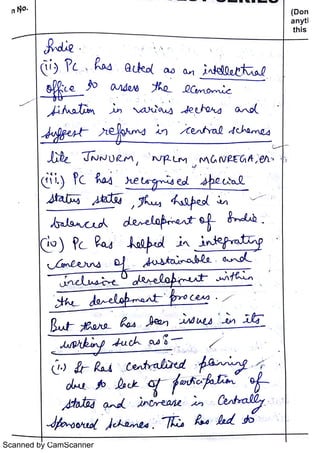 n No.
(Don
anyti
this
India.
(ii) PC has acted as an intellectual
office to assess the economic
situation in various sectors and
suggest reforms in central schemes
like JNNURM, NRLM, MGNREGA, etc.
(iii) PC has recognised special
status states, thus helped in
balanced development of India.
(iv) PC has helped in integrating
concerns of sustainable and
inclusive development within
the development process.
But there has been issues in its
working such as :-
(i) It has centralized planning
due to lack of participation of
states and increase in Centrally
Sponsored Schemes. This has led to
Scanned by CamScanner